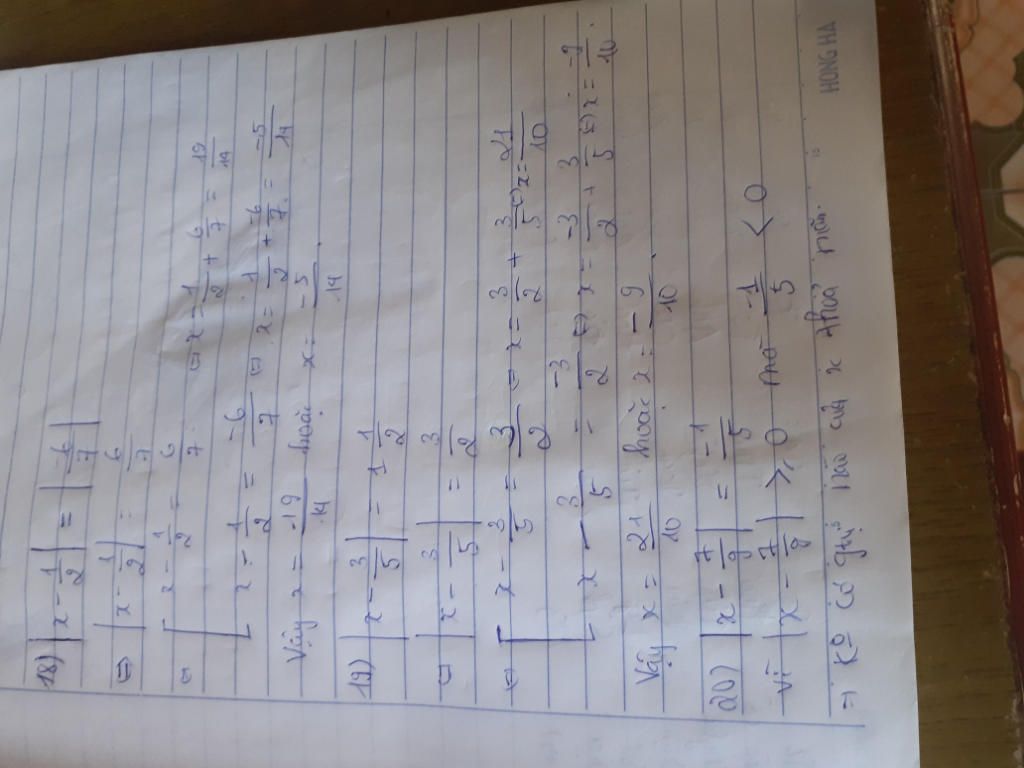 18) |x - 1/2| = |-6/7|
⇔ |x - 1/2| = 6/7
⇔ [ x - 1/2 = 6/7 ⇔ x = 1/2 + 6/7 = 19/14
x - 1/2 = -6/7 ⇔ x = 1/2 + -6/7 = -5/14
Vậy x = -19/14 hoặc x = -5/14
19) |x - 3/5| = 1 1/2
⇔ |x - 3/5| = 3/2
⇔ [ x - 3/5 = 3/2 ⇔ x = 3/2 + 3/5 ⇔ x = 21/10
x - 3/5 = -3/2 ⇔ x = -3/2 + 3/5 ⇔ x = -9/10
Vậy x = 21/10 hoặc x = -9/10
20) |x - 7/9| = -1/5
Vì |x - 7/9| ⩾ 0 mà -1/5 < 0
⇒ Kº có giá trị nào của x thoả mãn.
HONG HA